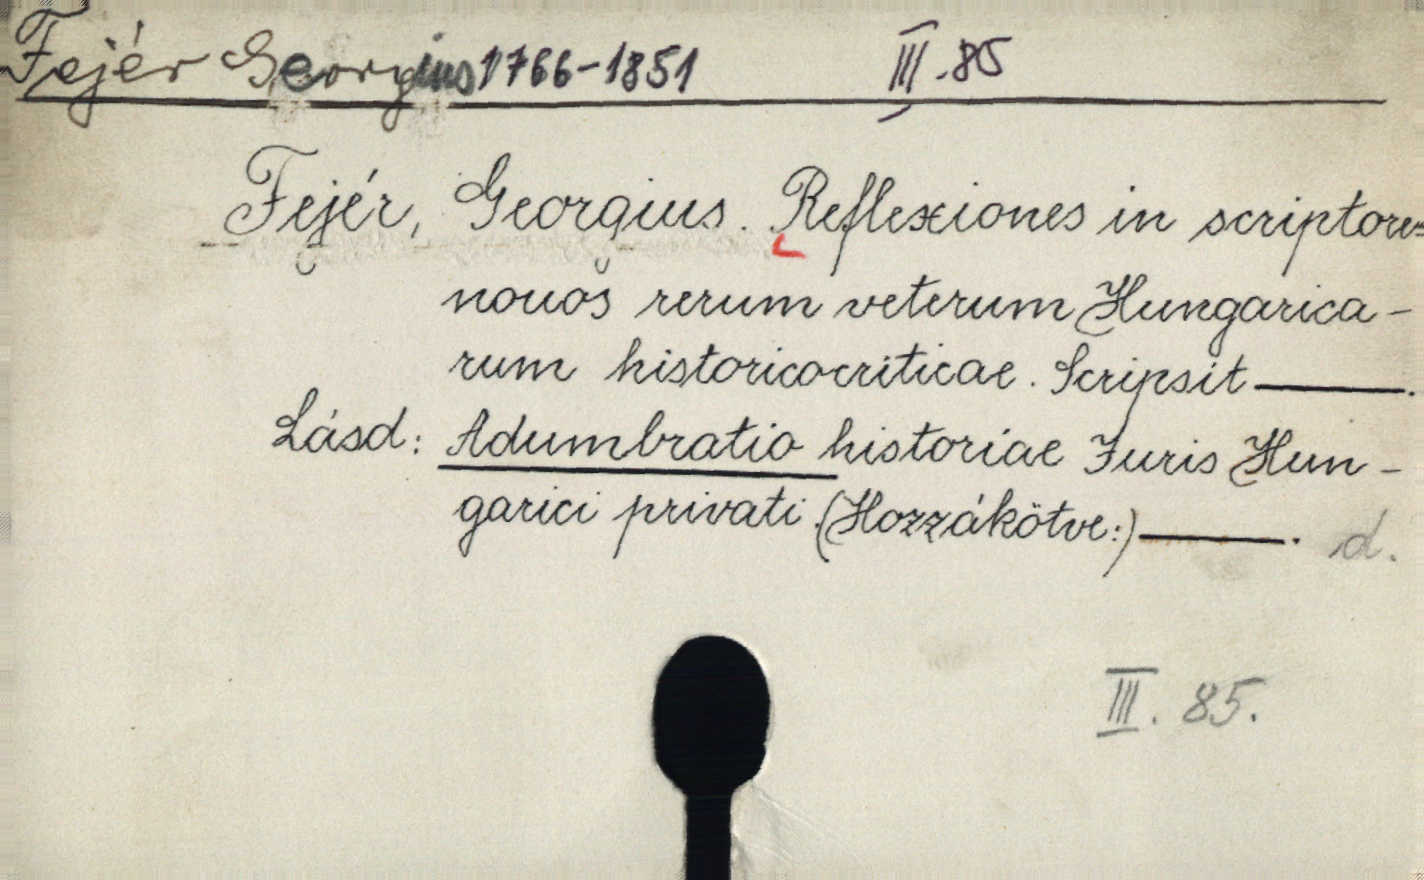 Fejér Georgius 1766-1851 III.85
Fejér, Georgius. Reflexiones in scriptores
nouos rerum veterum Hungarica-
rum historicocriticae. Scripsit ———.
Lásd: Adumbratio historiae Juris Hun-
garici privati. (Hozzákötve:) ———. d.
III. 85.